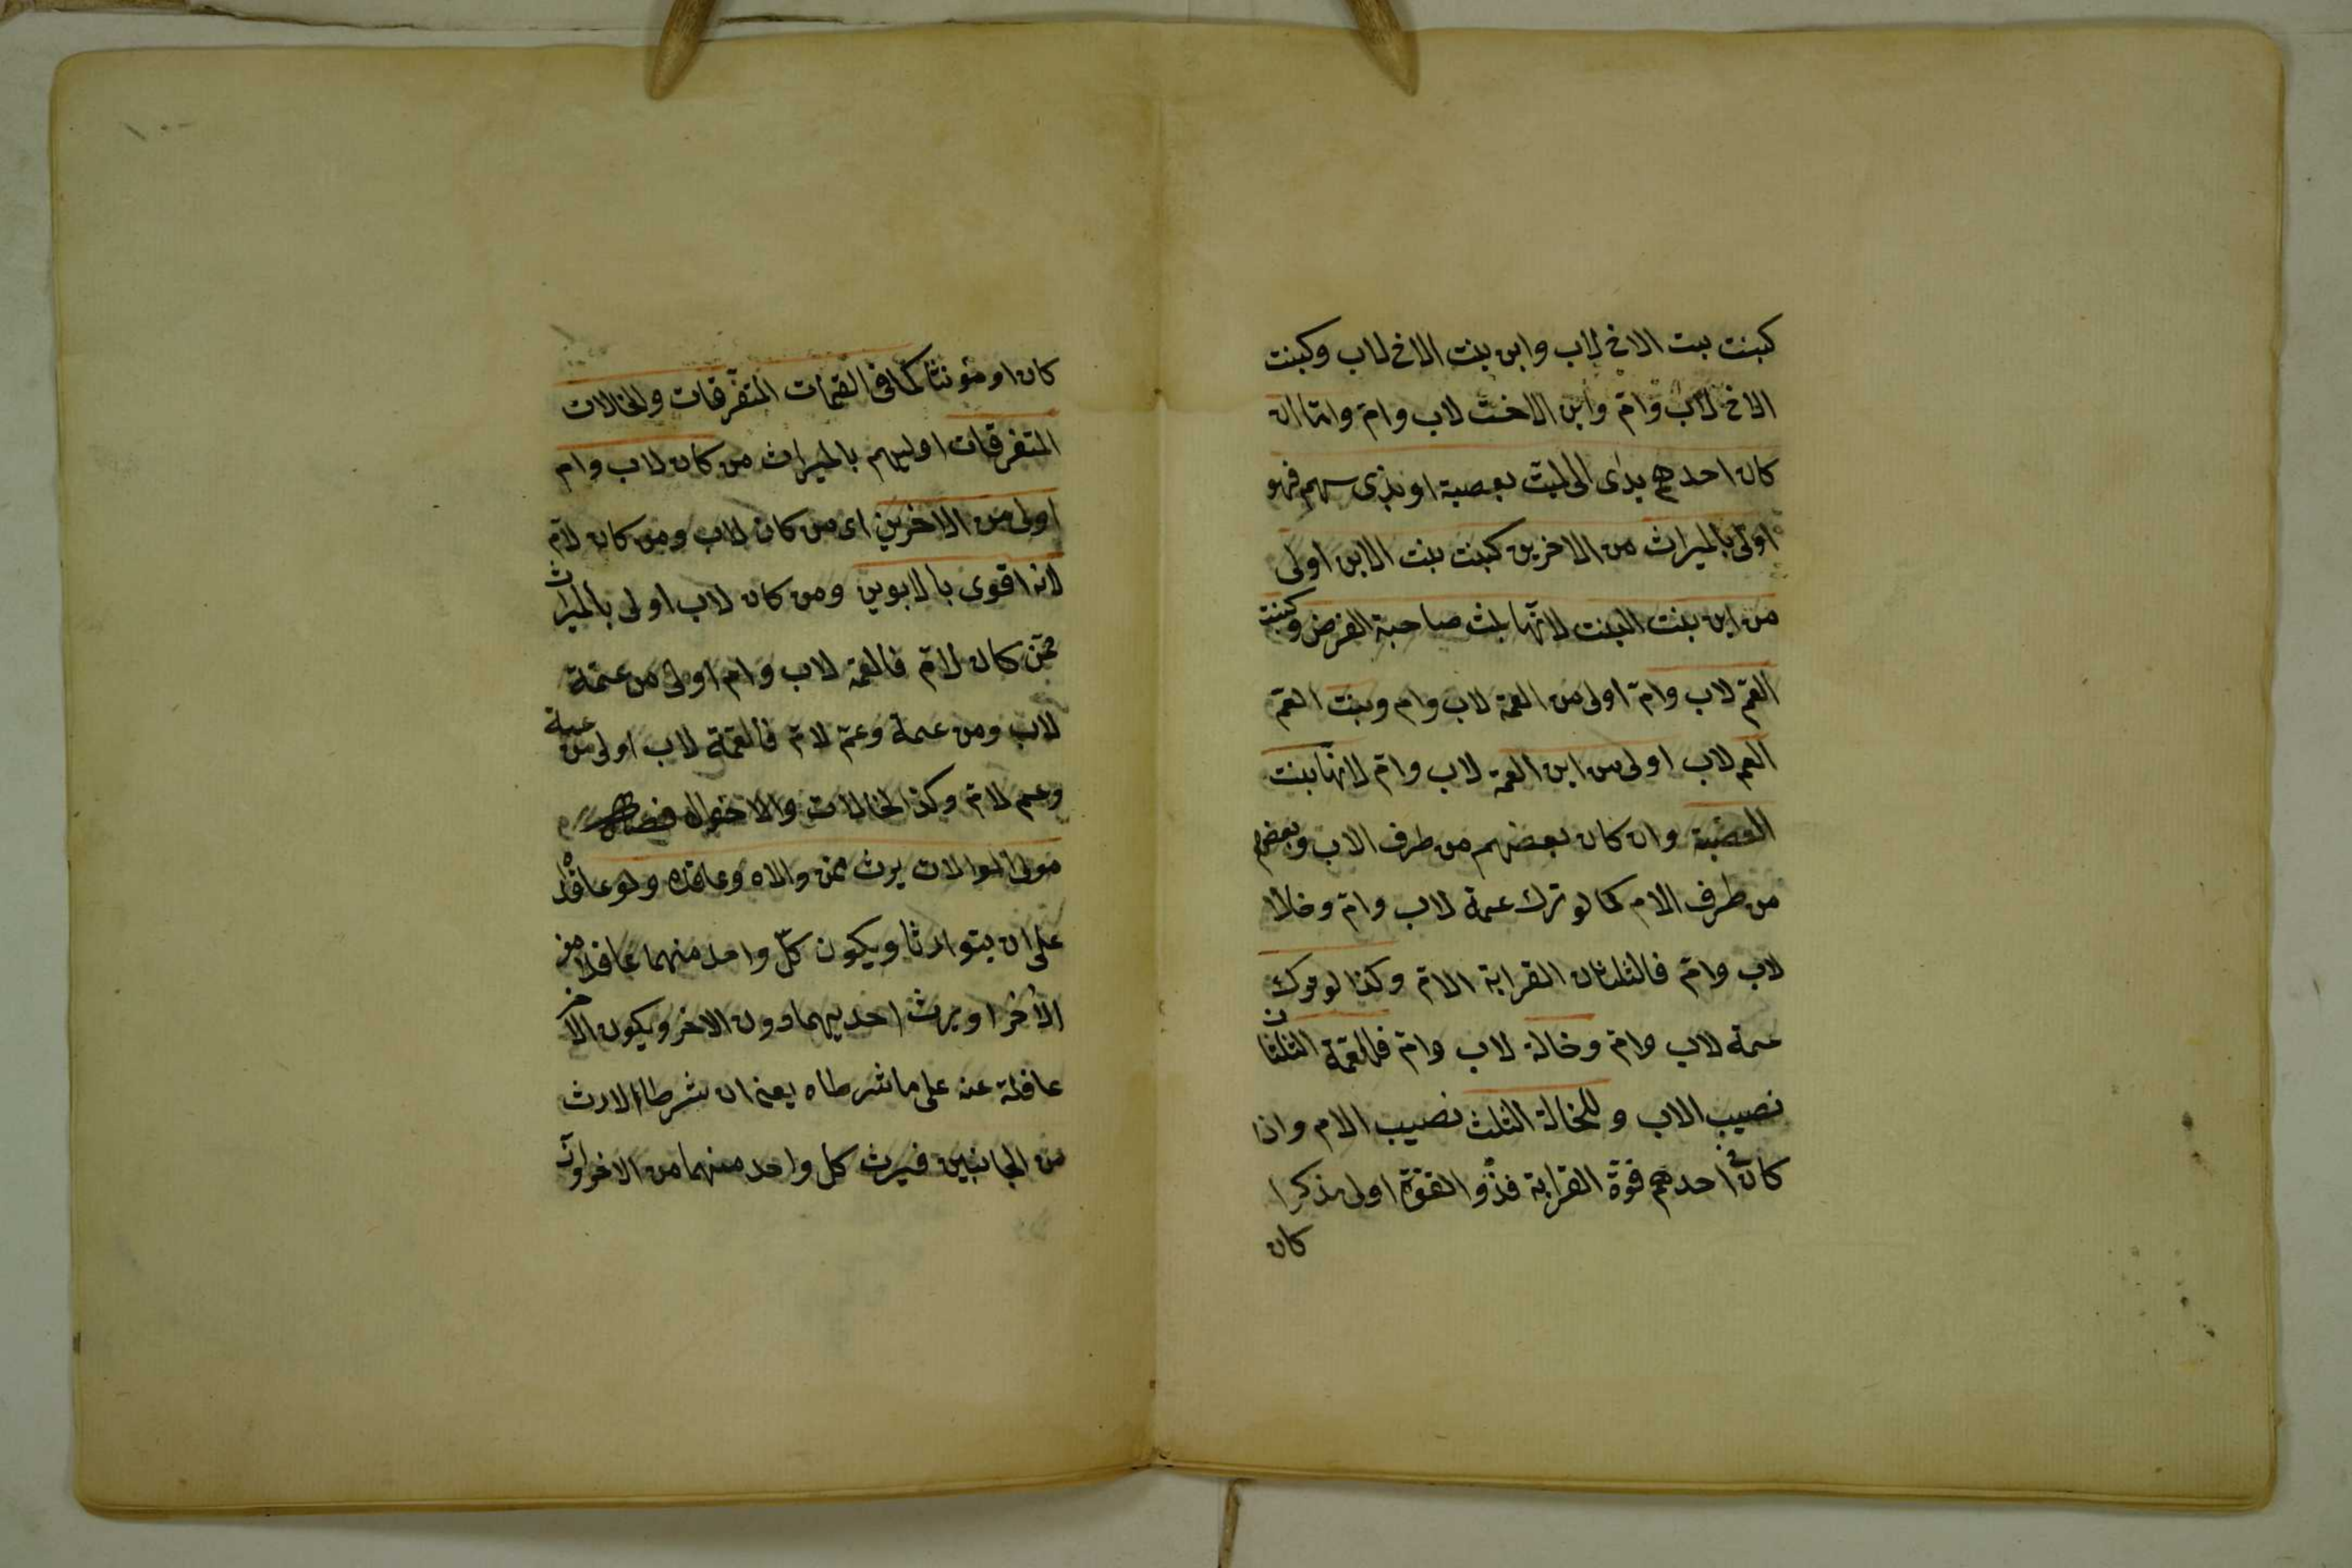 كبنت بنت الاخ لاب وابن بنت الاخ لاب وكبنت
الاخ لاب وامّ وابن الاخت لاب وامّ واما ان
كان احدهم يدلى الى الميت بعصبة او بذى سهم فهو
اولى بالميراث من الاخرين كبنت بنت الابن اولى
من ابن بنت البنت لانّها بنت صاحبة الفرض وكبنت
العمّ لاب وامّ اولى من العمة لاب وام وبنت العمّ
العم لاب اولى من ابن العمة لاب وامّ لانّها بنت
العصبة وان كان بعضهم من طرف الاب وبعضهم
من طرف الام كما لو ترك عمة لاب وامّ وخالا
لاب وامّ فالثلثان القرابة الامّ وكذا لو ترك
عمة لاب وامّ وخالة لاب وامّ فللعمّة الثلثان
نصيب الاب وللخالة الثلث نصيب الام واذا
كان فى احدهم قوة القرابة فذو القوّة اولى مذكرا
كان
كان او مؤنثا كما فى العمّات المتفرقات والخالات
المتفرقات اوليهم بالميراث من كان لاب وام
اولى من الاخرين اى من كان لاب ومن كان لامّ
لانه اقوى بالابوين ومن كان لاب اولى بالميراث
ممّن كان لامّ فالعمّة لاب وام اولى من عمّة
لاب ومن عمة وعمّ لامّ فالعمّة لاب اولى من عمة
وعم لامّ وكذا الخالات والاخوال
مولى الموالات يرث ممن والاه وعاقده ولو عاقدا
على ان يتوارثا ويكون كلّ واحد منهما عاقدا من
الاخر او يرث احديهما دون الاخر ويكون الاخر
عاقلة عنه على ما شرطاه يعنى ان شرطا الارث
من الجانبين فيرث كل واحد منهما من الاخر وان